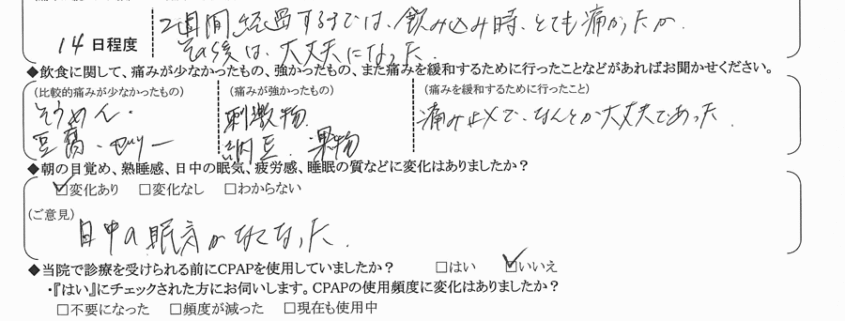 2週間経過するまでは、飲み込み時、とても痛かったが
14日程度
その後は、大丈夫になった。
◆飲食に関して、痛みが少なかったもの、強かったもの、また痛みを緩和するために行ったことなどがあればお聞かせください。
(比較的痛みが少なかったもの) (痛みが強かったもの) (痛みを緩和するために行ったこと)
そうめん・ 刺激物、 痛み止メで、なんとか大丈夫であった。
豆腐・ゼリー 納豆、果物
◆朝の目覚め、熟睡感、日中の眠気、疲労感、睡眠の質などに変化はありましたか？
☑変化あり □変化なし □わからない
(ご意見)
日中の眠気がなくなった。
◆当院で診療を受けられる前にCPAPを使用していましたか？ □はい ☑いいえ
・『はい』にチェックされた方にお伺いします。CPAPの使用頻度に変化はありましたか？
□不要になった □頻度が減った □現在も使用中